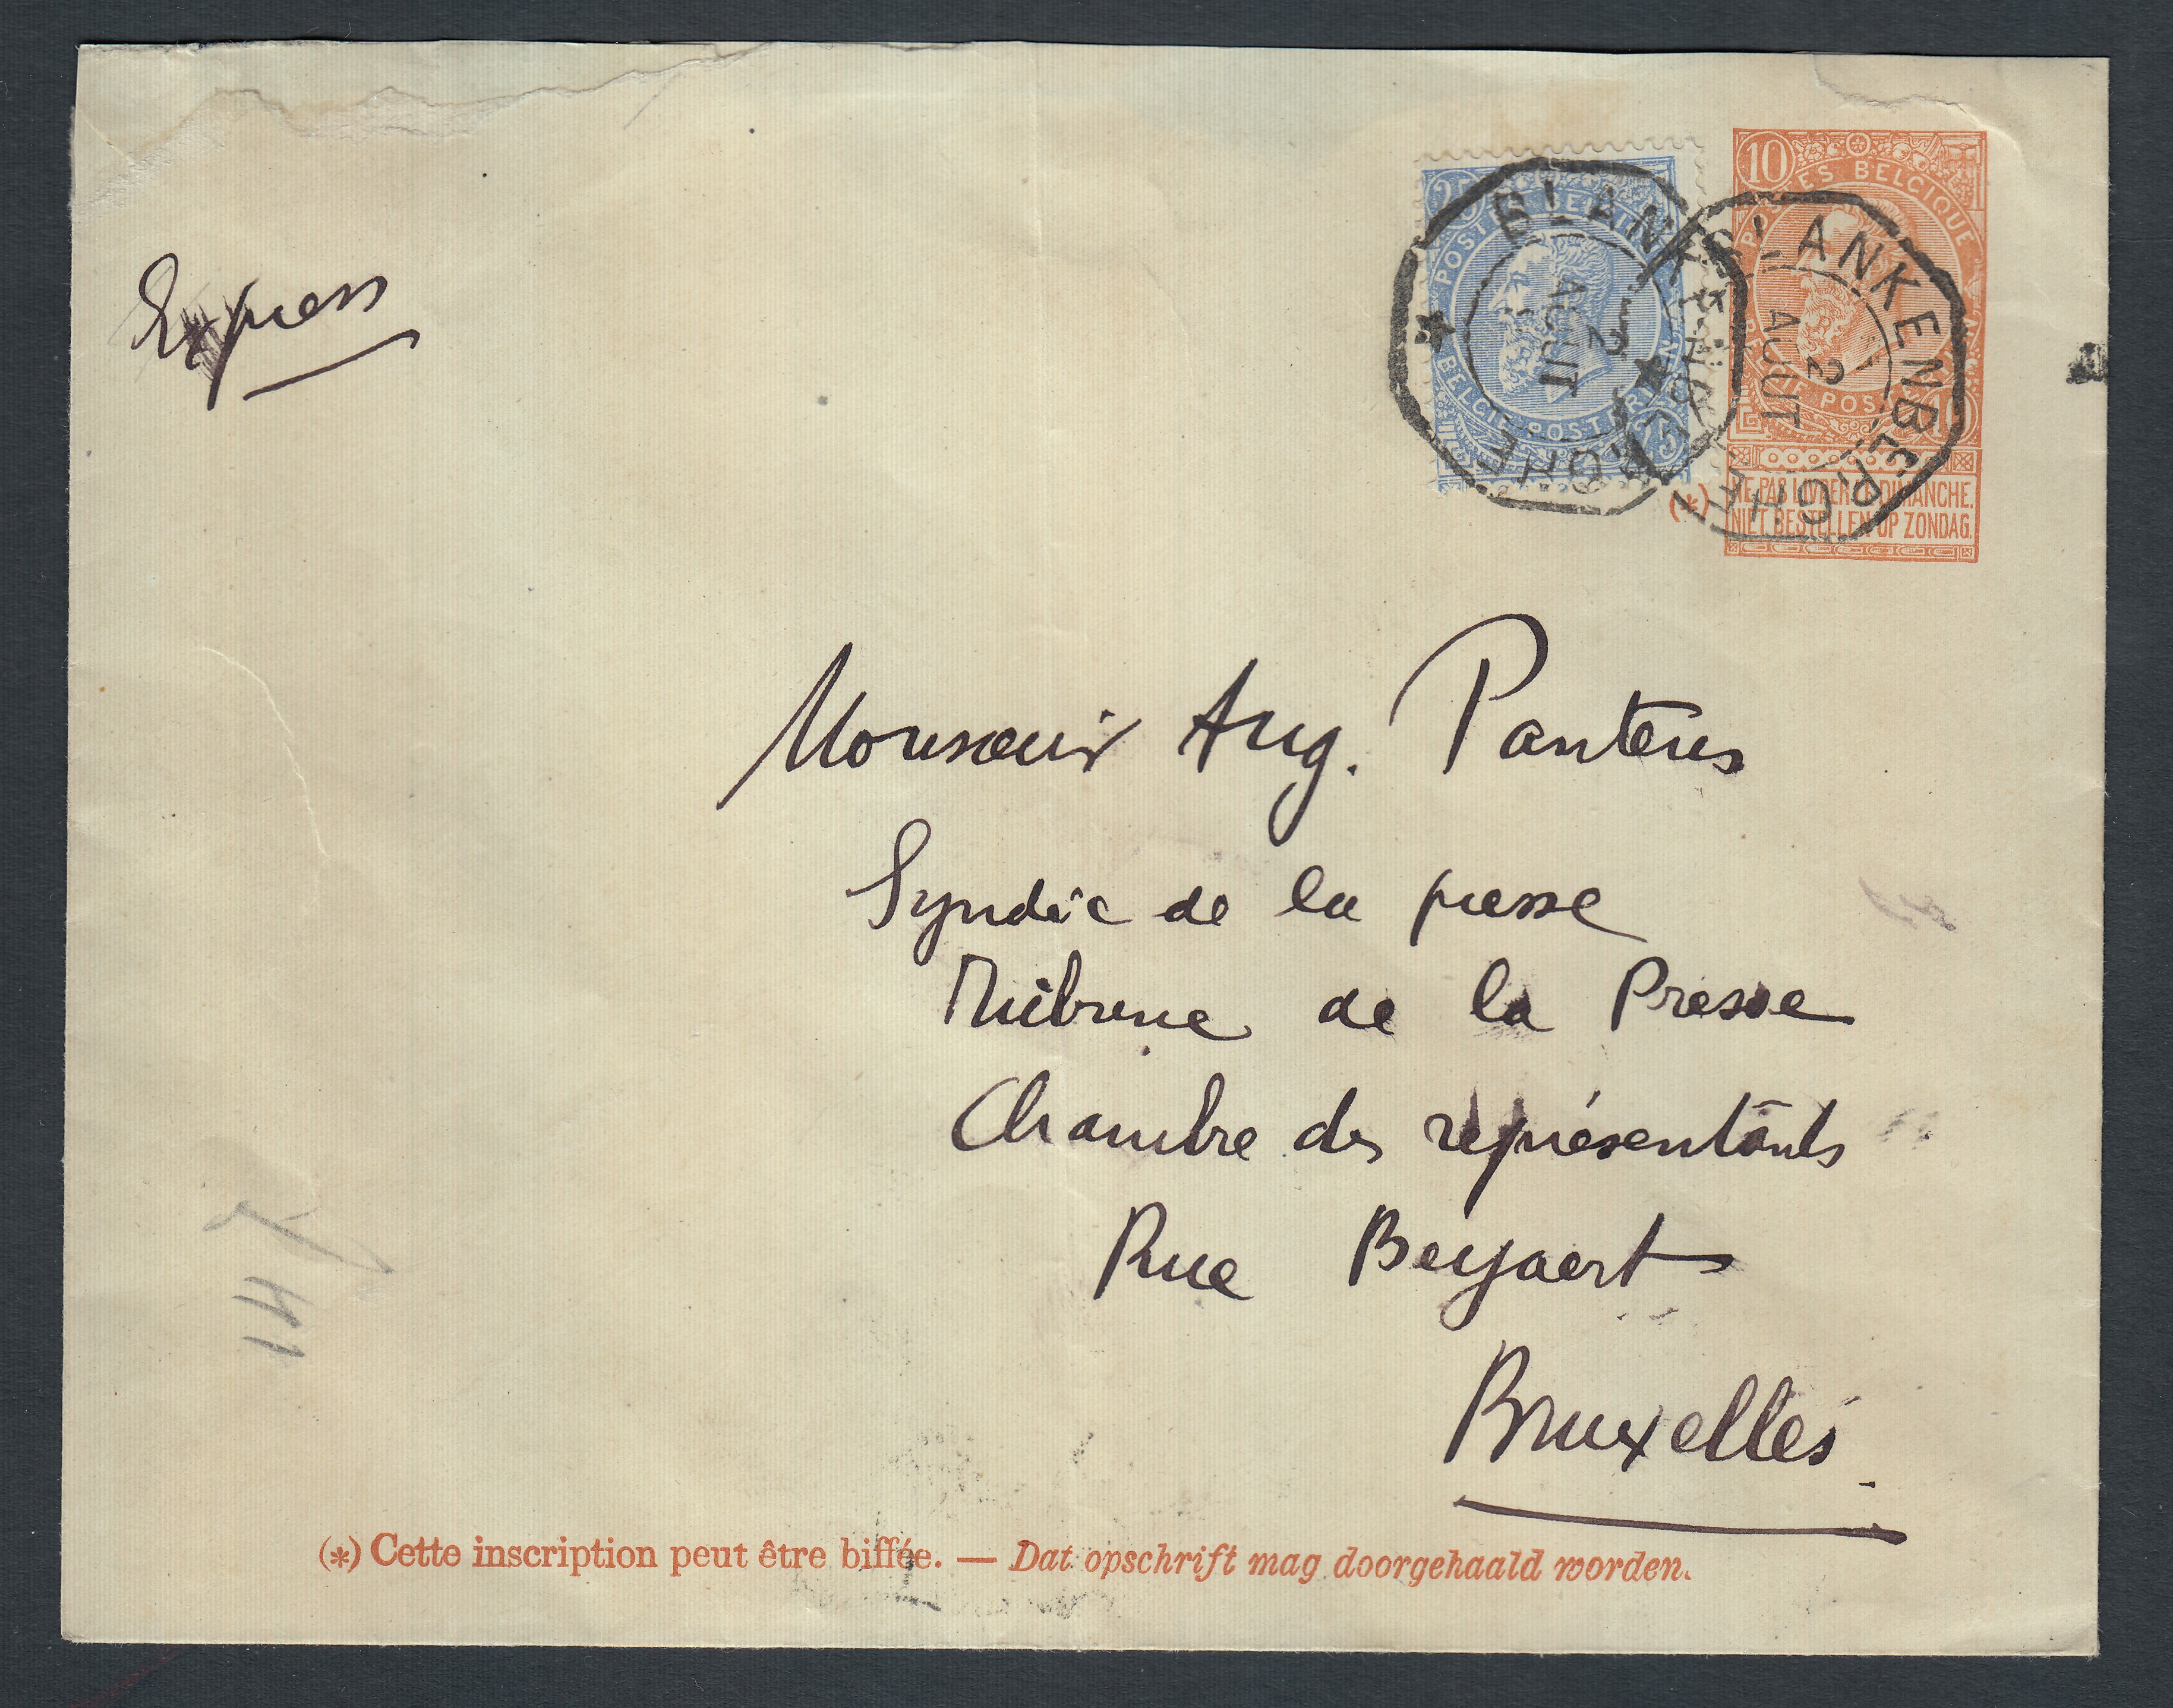 Express
25
POSTES BELGIQUE
BELGIE POSTERIJEN
25
BLANKENBERGHE
2
AOUT
10
POSTES BELGIQUE
BELGIE POSTERIJEN
10
BLANKENBERGHE
2
AOUT
(*) NE PAS LIVRER LE DIMANCHE.
NIET BESTELLEN OP ZONDAG.
Monsieur Aug.
Syndic de la presse
Tribune de la Presse
Chambre des représentants
Rue Beyaert
Bruxelles
14
(*) Cette inscription peut être biffée. — Dat opschrift mag doorgehaald worden.